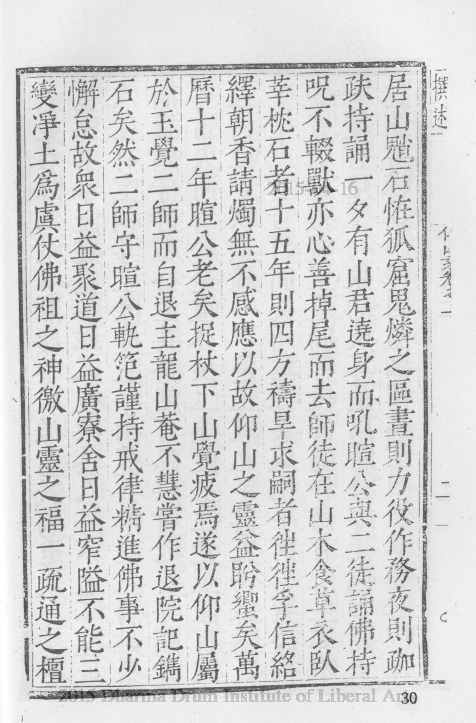 撰述
居山魈石恠狐窟鬼燐之區晝則力役作務夜則跏
趺持誦一夕有山君遶身而吼暄公與二徒誦佛持
呪不輟獸亦心善掉尾而去師徒在山木食草衣臥
莘枕石者十五年則四方禱旱求嗣者徃徃孚信絡
繹朝香請燭無不感應以故仰山之靈益肹蠁矣萬
曆十二年暄公老矣捉杖下山覺疲焉遂以仰山屬
於玉覺二師而自退主龍山菴不慧嘗作退院記鐫
石矣然二師守暄公軌笵謹持戒律精進佛事不少
懈怠故衆日益聚道日益廣寮舍日益窄隘不能三
變淨土爲虞仗佛祖之神徼山靈之福一疏通之檀
2015 Dharma Drum Institute of Liberal Arts
30